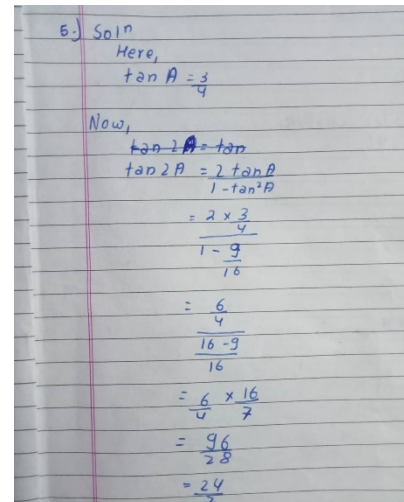 5.) Soln
Here,
tan A = 3/4
Now,
tan 2A = tan
tan 2A = 2 tan A / 1 - tan²A
= 2 × 3/4 / 1 - 9/16
= 6/4 / 16 - 9/16
= 6/4 × 16/7
= 96/28
= 24/